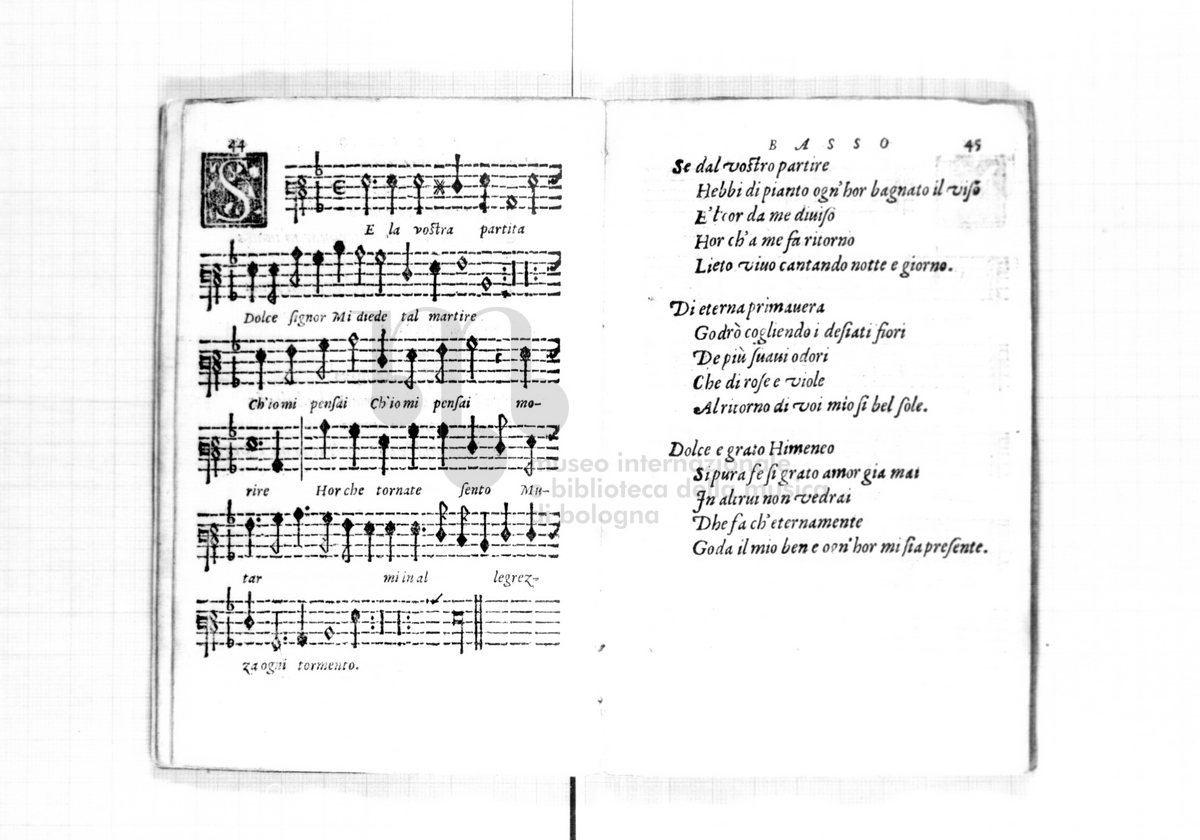 44
S
E la voſtra partita
Dolce ſignor Mi diede tal martire
Ch'io mi penſai Ch'io mi penſai mo-
rire Hor che tornate ſento Mu-
tar mi in al legrez-
za ogni tormento.
BASSO 45
Se dal voſtro partire
Hebbi di pianto ogn'hor bagnato il viſo
E'l cor da me diuiſo
Hor ch'a me fa ritorno
Lieto viuo cantando notte e giorno.
Di eterna primauera
Godrò cogliendo i deſiati fiori
De più ſuaui odori
Che di roſe e viole
Al ritorno di voi mio ſi bel ſole.
Dolce e grato Himeneo
Si pura fe ſi grato amor gia mai
In altrui non vedrai
Dhe fa ch'eternamente
Goda il mio ben e ogn'hor mi ſia preſente.
museo internazionale
e biblioteca della musica
di bologna